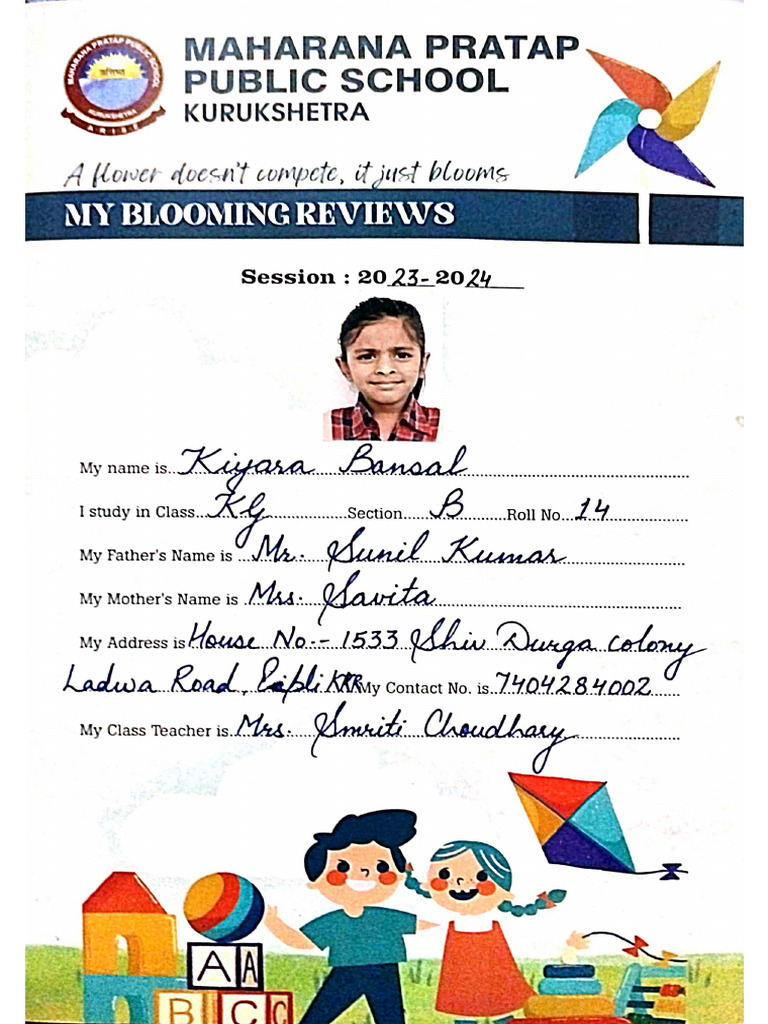 MAHARANA PRATAP PUBLIC SCHOOL
KURUKSHETRA
ARISE
MAHARANA PRATAP
PUBLIC SCHOOL
KURUKSHETRA
A flower doesn't compete, it just blooms
MY BLOOMING REVIEWS
Session : 2023-2024
My name is Kiyara Bansal
I study in Class KG Section B Roll No. 14
My Father's Name is Mr. Sunil Kumar
My Mother's Name is Mrs. Savita
My Address is House No.- 1533 Shiv Durga colony
Ladwa Road, KKR My Contact No. is 7404284002
My Class Teacher is Mrs. Smriti Choudhary
A A
B C C